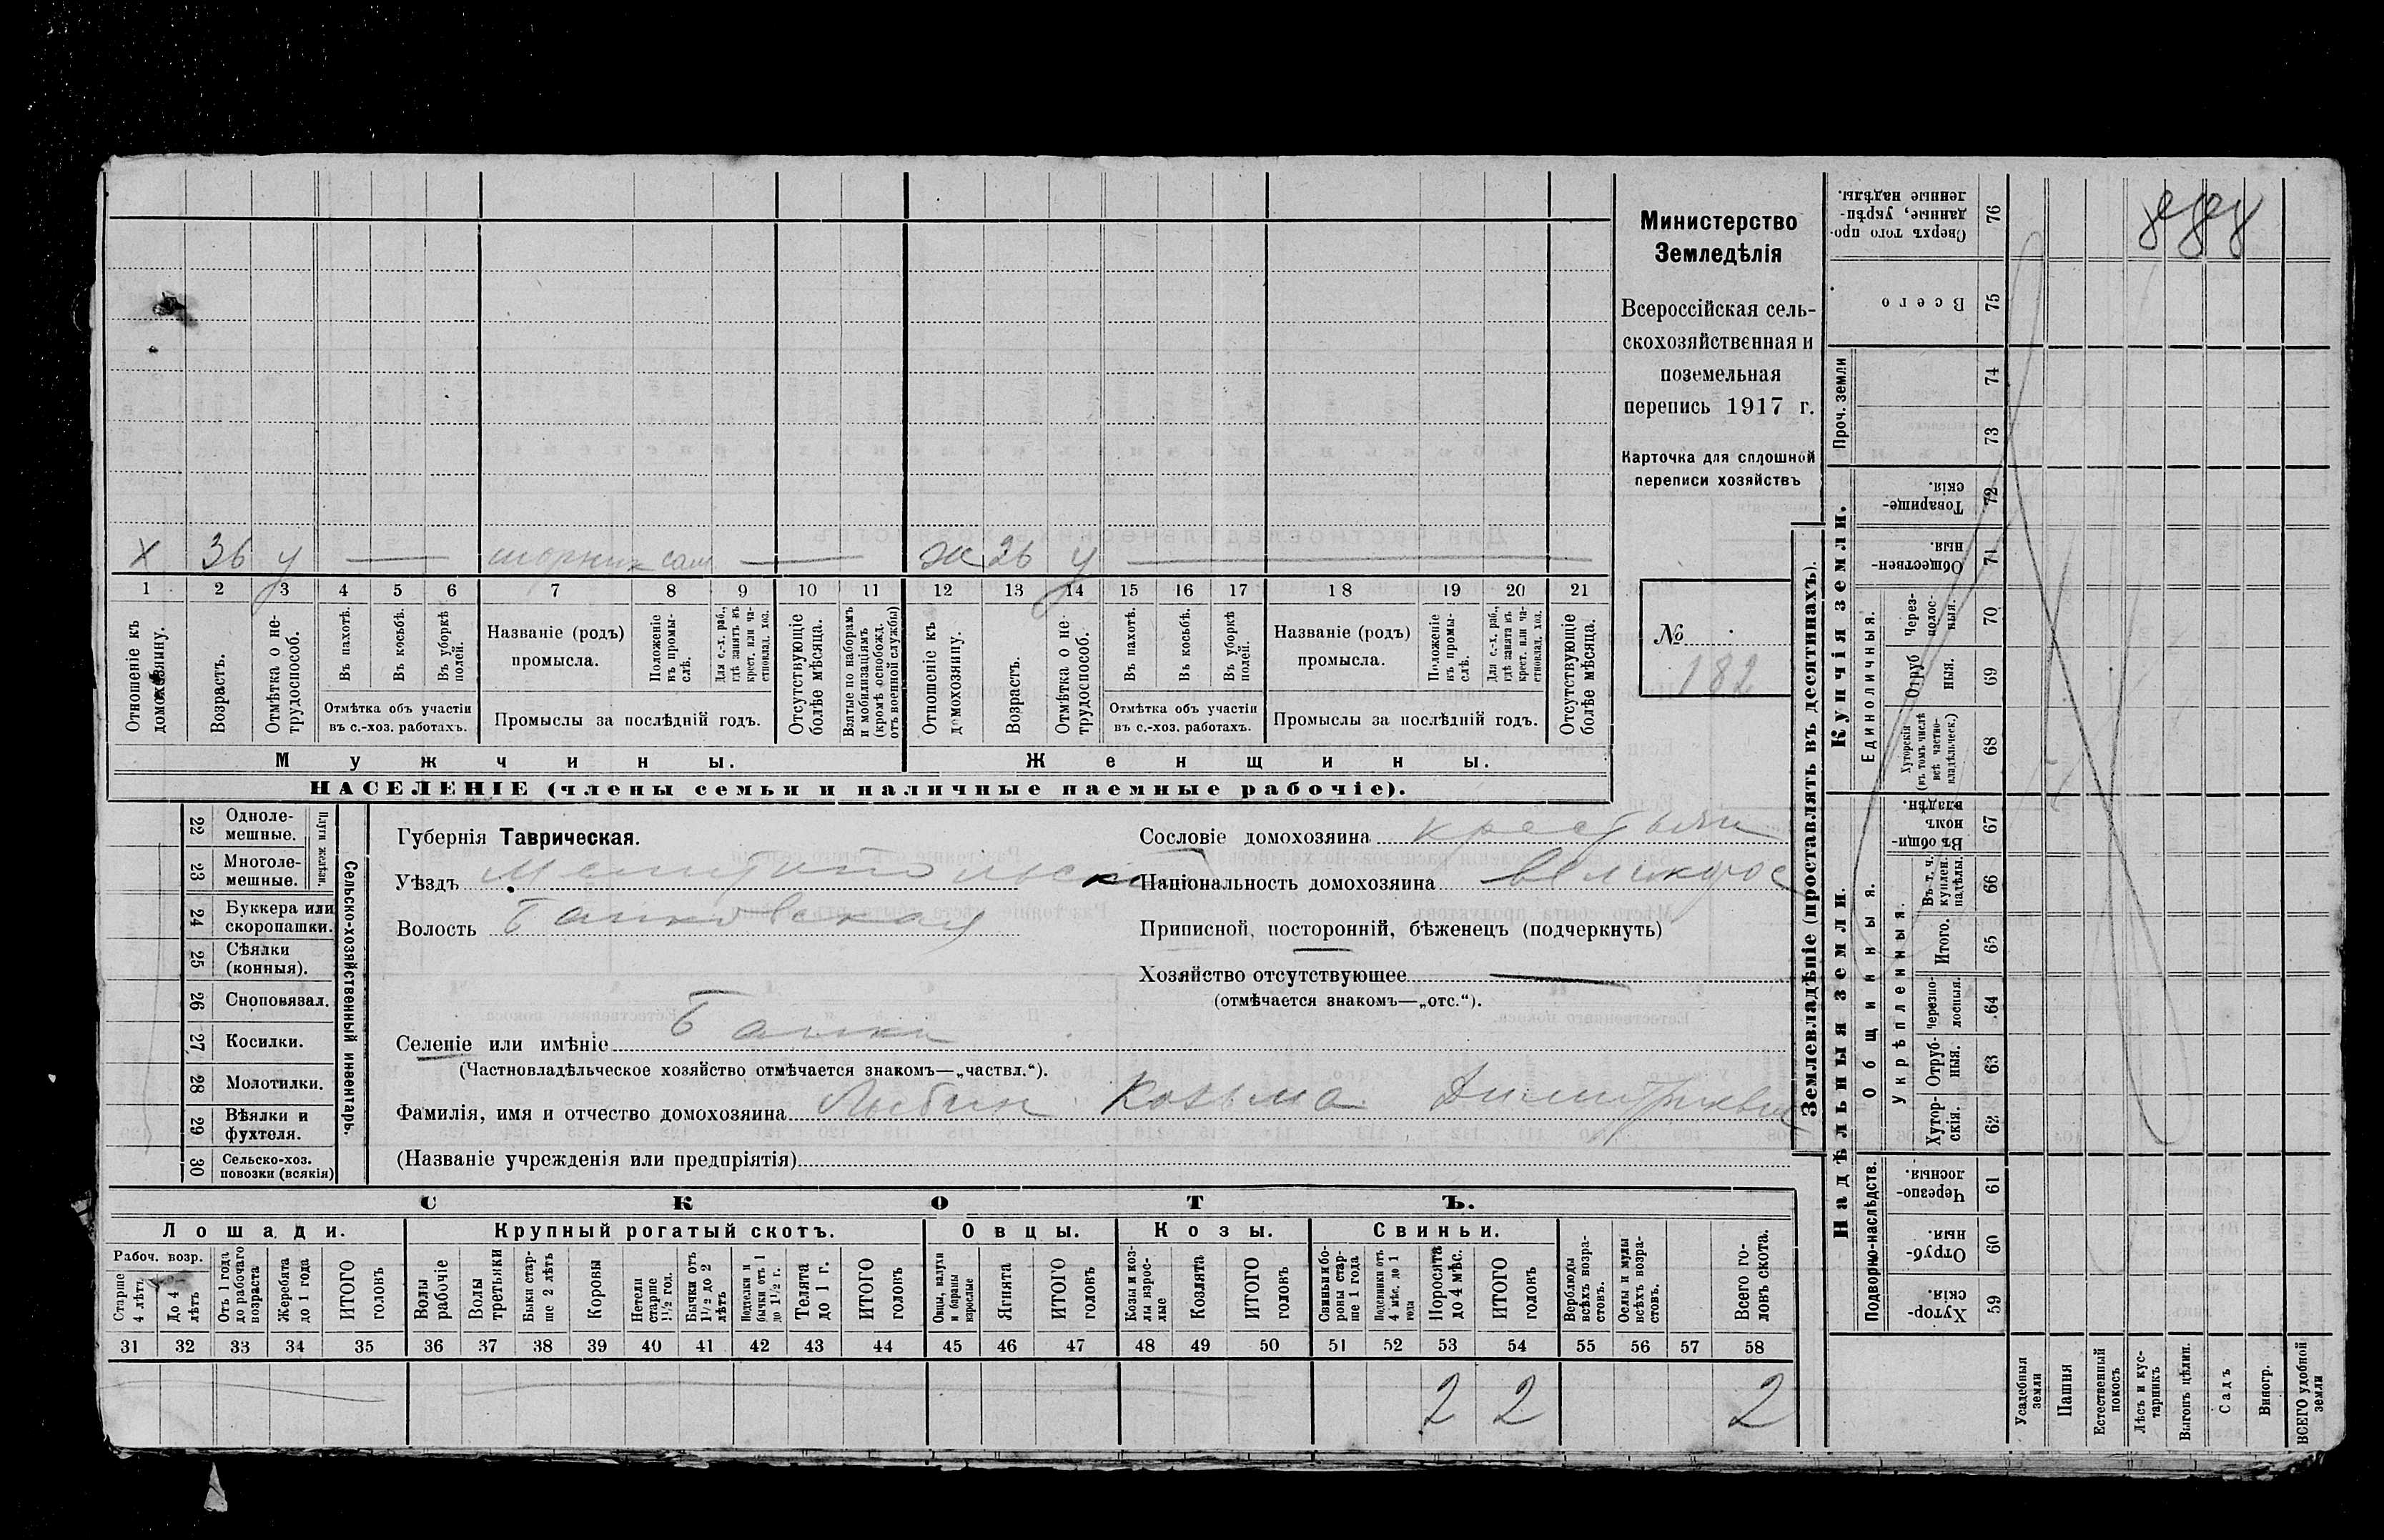 Министерство
Земледѣлія
Всероссійская сель-
скохозяйственная и
поземельная
перепись 1917 г.
Карточка для сплошной
переписи хозяйствъ
№
182
X 36 у — шорник сам — Ж 36 у —
1 2 3 4 5 6 7 8 9 10 11 12 13 14 15 16 17 18 19 20 21
Отношеніе къ домохозяину.
Возрастъ.
Отмѣтка о не-трудоспособ.
Въ пахотѣ.
Въ косьбѣ.
Въ уборкѣ полей.
Отмѣтка объ участіи
въ с.-хоз. работахъ.
Названіе (родъ)
промысла.
Положеніе въ промы-слѣ.
Для с.-х. раб., гдѣ занятъ въ крест. или ча-стновлад. хоз.
Промыслы за послѣдній годъ.
Отсутствующіе болѣе мѣсяца.
Взятые по наборамъ и мобилизаціямъ (кромѣ освобожд. отъ военной службы)
Отношеніе къ домохозяину.
Возрастъ.
Отмѣтка о не-трудоспособ.
Въ пахотѣ.
Въ косьбѣ.
Въ уборкѣ полей.
Отмѣтка объ участіи
въ с.-хоз. работахъ.
Названіе (родъ)
промысла.
Положеніе въ промы-слѣ.
Для с.-х. раб., гдѣ занята въ крест. или ча-стновлад. хоз.
Промыслы за послѣдній годъ.
Отсутствующіе болѣе мѣсяца.
Мужчины.
Женщины.
НАСЕЛЕНІЕ (члены семьи и наличные наемные рабочіе).
22 Одноле-мешные.
23 Многоле-мешные.
Плуги желѣзн.
24 Буккера или скоропашки.
25 Сѣялки (конныя).
26 Сноповязал.
27 Косилки.
28 Молотилки.
29 Вѣялки и фухтеля.
30 Сельско-хоз. повозки (всякія)
Сельско-хозяйственный инвентарь.
Губернія Таврическая.
Уѣздъ Мелитопольскій
Волость Банновская
Селеніе или имѣніе Банки
(Частновладѣльческое хозяйство отмѣчается знакомъ—„частвл.“).
Фамилія, имя и отчество домохозяина Лыбин Козьма Димитриевич
(Названіе учрежденія или предпріятія)
Сословіе домохозяина крестьян
Національность домохозяина великорос
Приписной, посторонній, бѣженецъ (подчеркнуть)
Хозяйство отсутствующее —
(отмѣчается знакомъ—„отс.“).
СКОТЪ.
Лошади.
Крупный рогатый скотъ.
Овцы.
Козы.
Свиньи.
Рабоч. возр.
Старше 4 лѣтъ
До 4 лѣтъ
Отъ 1 года до рабочаго возраста
Жеребята до 1 года
ИТОГО головъ
Волы рабочіе
Волы третьяки
Быки стар-ше 2 лѣтъ
Коровы
Нетели старше 1½ год.
Бычки отъ 1½ до 2 лѣтъ
Подтелки и бычки отъ 1 до 1½ г.
Телята до 1 г.
ИТОГО головъ
Овцы, валухи и бараны взрослые
Ягнята
ИТОГО головъ
Козы и коз-лы взрос-лые
Козлята
ИТОГО головъ
Свиньи и бо-ровы стар-ше 1 года
Подсвинки отъ 4 мѣс. до 1 года
Поросята до 4 мѣс.
ИТОГО головъ
Верблюды всѣхъ возра-стовъ.
Ослы и мулы всѣхъ возра-стовъ.
Всего го-ловъ скота.
31 32 33 34 35 36 37 38 39 40 41 42 43 44 45 46 47 48 49 50 51 52 53 54 55 56 57 58
2 2 2
Землевладѣніе (проставлять въ десятинахъ).
Купчія земли.
Надѣльныя земли.
Проч. земли
Единоличныя.
Общинныя.
Укрѣпленныя.
Подворно-наслѣдств.
Сверхъ того про-данные, укрѣп-ленные надѣлы. 76
Всего 75
74
73
Товарище-скія. 72
Обществен-ныя. 71
Через-полос-ныя. 70
Отруб-ныя. 69
Хуторскія (въ томъ числѣ всѣ частно-владѣльческ.) 68
Въ общин-номъ владѣн. 67
Въ т. ч. куплен. надѣлы. 66
Итого. 65
Черезпо-лосныя. 64
Отруб-ныя. 63
Хутор-скія. 62
Черезпо-лосныя. 61
Отруб-ныя. 60
Хутор-скія. 59
Усадебныя земли
Пашня
Естественный покосъ
Лѣсъ и кус-тарникъ
Выгонъ цѣлин.
Садъ
Виногр.
ВСЕГО удобной земли